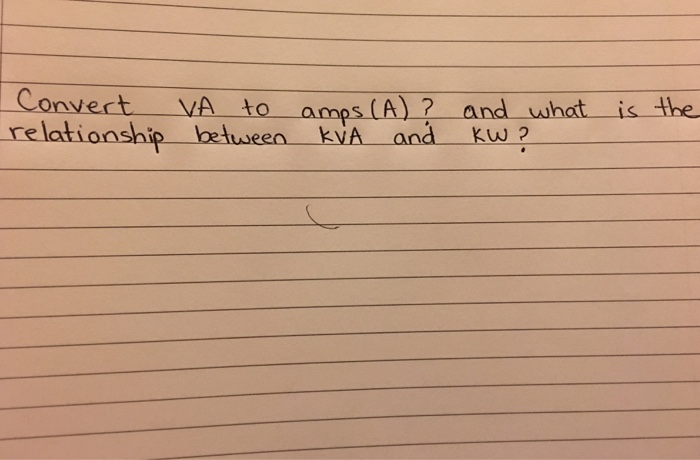 Convert VA to amps (A) ? and what is the
relationship between kVA and kW ?